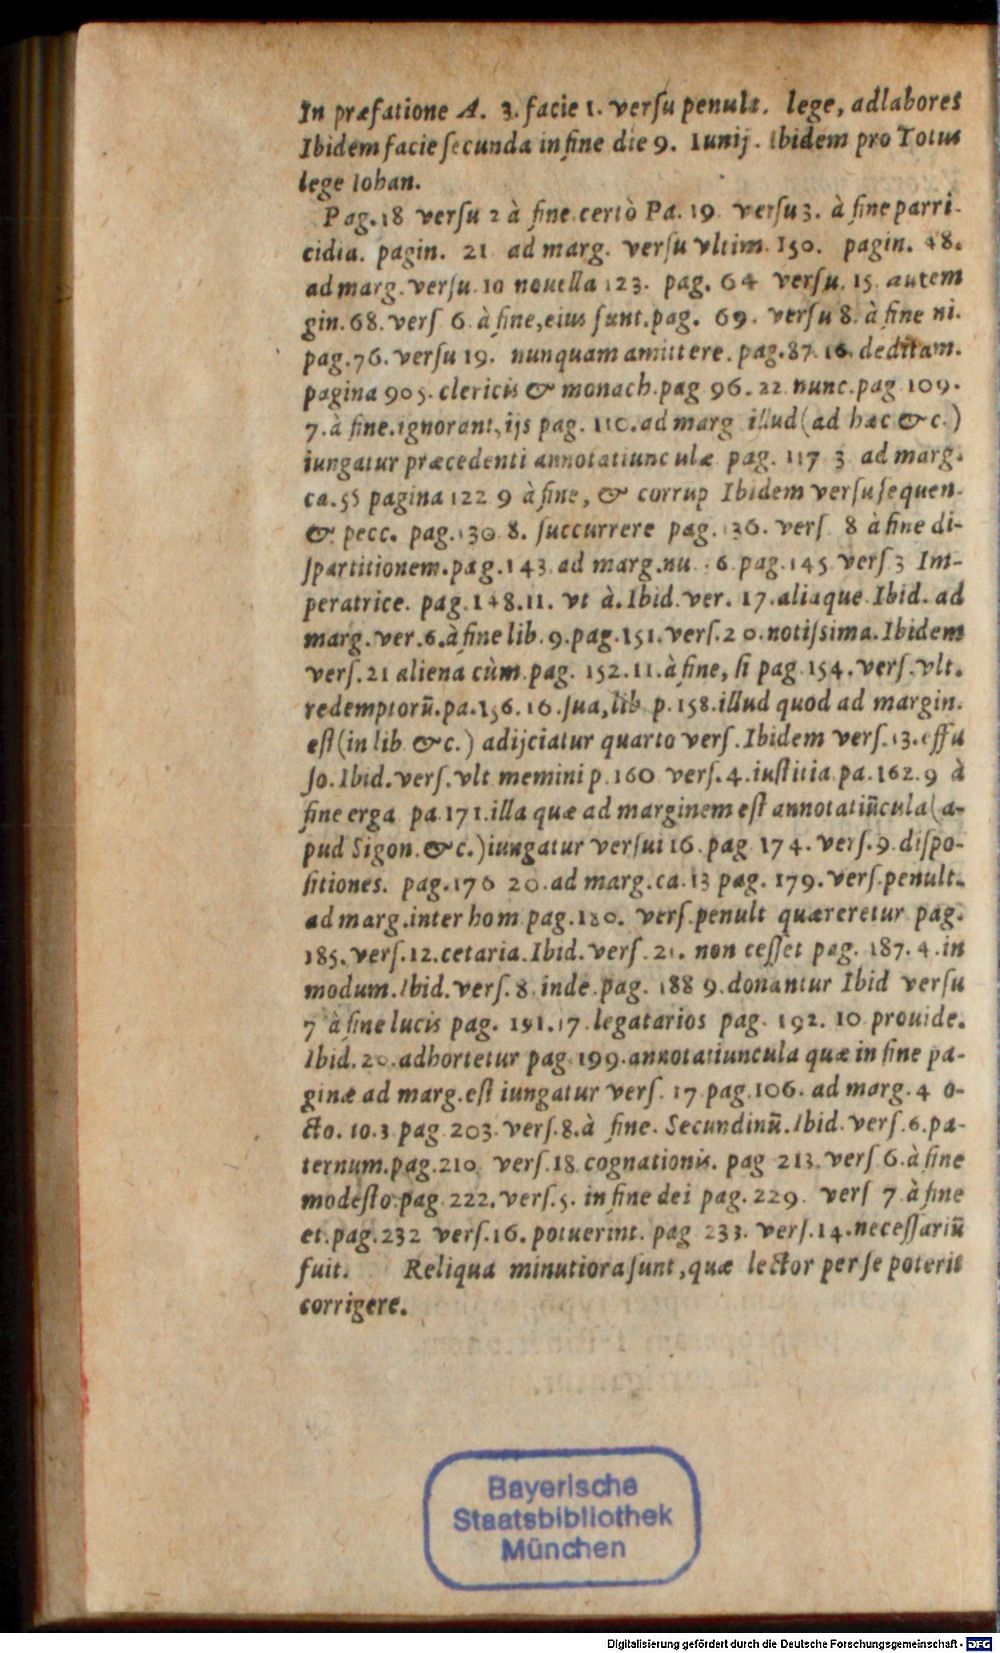 In præfatione A. 3. facie 1. versu penult. lege, adlabores
Ibidem facie secunda in fine die 9. Iunij. Ibidem pro Totus
lege Iohan.
Pag. 18 versu 2 à fine. certò Pa. 19. versu 3. à fine parri-
cidia. pagin. 21 ad marg. versu vltim. 150. pagin. 48.
ad marg. versu. 10 nouella 123. pag. 64 versu. 15. autem
gin. 68. vers 6. à fine, eius sunt. pag. 69. versu 8. à fine ni.
pag. 76. versu 19. nunquam amittere. pag. 87. 16. deditam.
pagina 905. clericis & monach. pag 96. 22. nunc. pag 109.
7. à fine. ignorant, ijs pag. 110. ad marg illud (ad hæc &c.)
iungatur præcedenti annotatiunculæ pag. 117 3 ad marg.
ca. 55 pagina 122 9 à fine, & corrup Ibidem versu sequen-
& pecc. pag. 130 8. succurrere pag. 136. vers 8 à fine di-
spartitionem. pag. 143 ad marg. nu 6 pag. 145 vers 3 Im-
peratrice. pag. 148. 11. vt à. Ibid. ver. 17. aliaque Ibid. ad
marg. ver. 6. à fine lib. 9. pag. 151. vers. 20. notissima. Ibidem
vers. 21 aliena cùm pag. 152. 11. à fine, si pag 154. vers. vlt.
redemptorũ. pa. 156. 16. sua, lib p. 158. illud quod ad margin.
est (in lib &c.) adijciatur quarto vers. Ibidem vers. 13. effu
so. Ibid. vers. vlt memini p. 160 vers. 4. iustitia pa. 162. 9 à
fine erga pa 171. illa quæ ad marginem est annotatiũcula (a-
pud Sigon. &c.) iungatur versui 16. pag 174. vers. 9. dispo-
sitiones. pag. 176 20. ad marg. ca. 13 pag. 179. vers. penult.
ad marg. inter hom pag. 180. vers. penult quæreretur pag.
185. vers. 12. cetaria. Ibid. vers. 21. non cesset pag. 187. 4. in
modum. Ibid. vers. 8. inde. pag. 188 9. donantur Ibid versu
7 à fine lucis pag. 191. 17. legatarios pag. 192. 10 prouide.
Ibid. 20. adhortetur pag. 199. annotatiuncula quæ in fine pa-
ginæ ad marg. est iungatur vers. 17. pag. 106. ad marg. 4 o-
cto. 10. 3. pag 203. vers. 8. à fine. Secundinũ. Ibid. vers. 6. pa-
ternum. pag. 210. vers. 18. cognationis. pag 213. vers 6. à fine
modesto. pag. 222. vers. 5. in fine dei pag. 229. vers 7 à fine
et. pag. 232 vers. 16. potuerint. pag 233. vers. 14. necessariũ
fuit. Reliqua minutiora sunt, quæ lector per se poterit
corrigere.
Bayerische
Staatsbibliothek
München
Digitalisierung gefördert durch die Deutsche Forschungsgemeinschaft - DFG